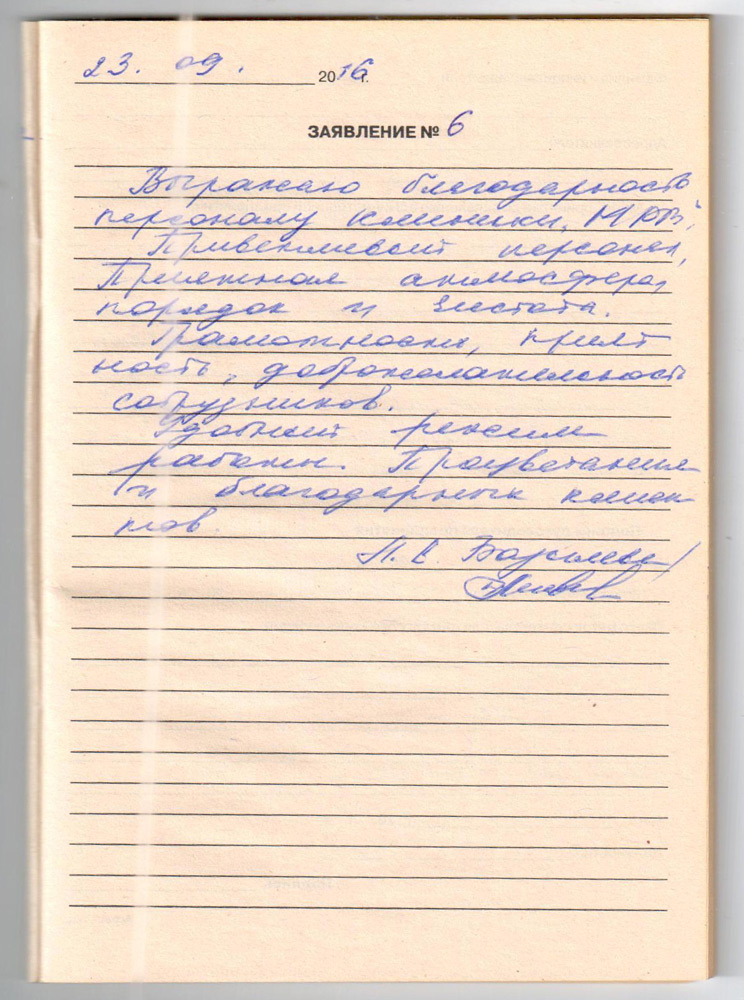 23. 09. 2016 г.
ЗАЯВЛЕНИЕ № 6
Выражаю благодарность
персоналу клиники
Приветливый персонал,
Приятная атмосфера,
порядок и чистота.
Грамотность, прият
ность, доброжелательность
сотрудников.
Удобный режим
работы. Процветания
и благодарных клиен
тов.